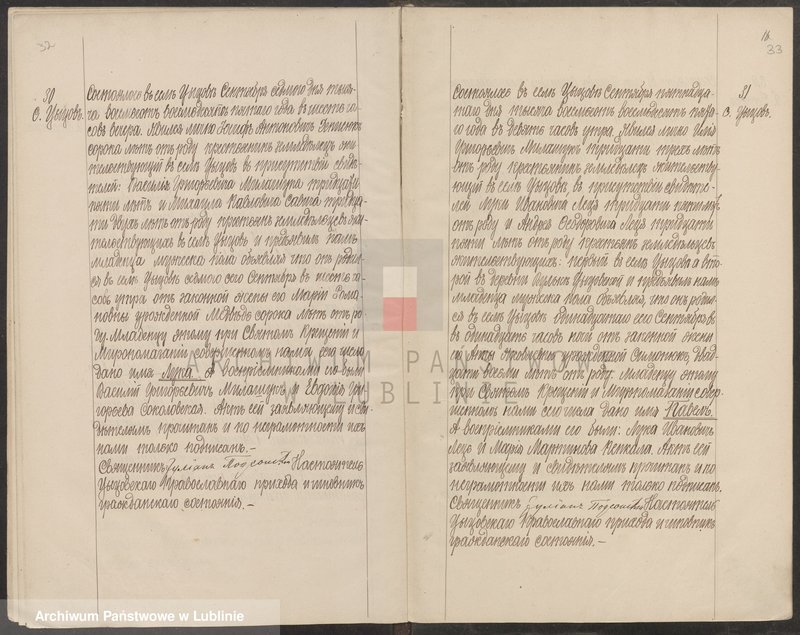 32
30
С. Уицовъ.
Состоялось въ селѣ Уицовъ Сентября седьмого дня тыся-
ча восемьсотъ восемьдесятъ пятаго года въ шесть ча-
совъ вечера. Явился лично Іосифъ Антоновичъ
сорока лѣтъ отъ роду крестьянинъ земледѣлецъ жи-
тельствующій въ селѣ Уицовъ въ присутствіи свидѣ-
телей: Василія Григорьевича Милашука тридцати
пяти лѣтъ и Михаила Савика тридца-
ти двухъ лѣтъ отъ роду крестьянъ земледѣльцевъ жи-
тельствующихъ въ селѣ Уицовъ и предъявилъ намъ
младенца мужеска пола объявляя что онъ родил-
ся въ селѣ Уицовъ седьмого сего Сентября въ шесть ча-
совъ утра отъ законной жены его Маріи Рома-
новны урожденной Медвѣдь сорока лѣтъ отъ ро-
ду. Младенцу этому при Святомъ Крещеніи и
Миропомазаніи совершенномъ нами сего числа
дано имя Лука а воспріемниками его были
Василій Григорьевичъ Милашукъ и Евдокія Гри-
горьева Соколовская. Актъ сей заявляющему и сви-
дѣтелямъ прочитанъ и по неграмотности ихъ
нами только подписанъ.—
Священникъ Юліанъ Настоятель
Уицовскаго Православнаго прихода и чиновникъ
гражданскаго состоянія.—
16
33
31
С. Уицовъ.
Состоялось въ селѣ Уицовъ Сентября пятнадца-
таго дня тысяча восемьсотъ восемьдесятъ пята-
го года въ девять часовъ утра. Явился лично Илія
Григорьевичъ Милашукъ тридцати трехъ лѣтъ
отъ роду крестьянинъ земледѣлецъ жительству-
ющій въ селѣ Уицовъ, въ присутствіи свидѣте-
лей Луки Ивановича Леця тридцати лѣтъ
отъ роду и Андрея Ѳедоровича Леця тридцати
пяти лѣтъ отъ роду крестьянъ земледѣльцевъ
жительствующихъ: первый въ селѣ Уицовъ а вто-
рой въ деревни Вулька Уицовской и предъявилъ намъ
младенца мужеска пола объявляя, что онъ родил-
ся въ селѣ Уицовъ одинадцатаго сего Сентября въ
въ одинадцать часовъ ночи отъ законной жены
его Анны урожденной Симонюкъ двад-
цати восьми лѣтъ отъ роду. Младенцу этому
при Святомъ Крещеніи и Миропомазаніи совер-
шенномъ нами сего числа дано имя Павелъ.
А воспріемниками его были: Лука Ивановичъ
Лець и Марія Мартинова. Актъ сей
заявляющему и свидѣтелямъ прочитанъ и по
неграмотности ихъ нами только подписанъ.
Священникъ Юліанъ Настоятель
Уицовскаго Православнаго прихода и чиновникъ
гражданскаго состоянія.—
ARCHIWUM PAŃSTWOWE
W LUBLINIE
Archiwum Państwowe w Lublinie